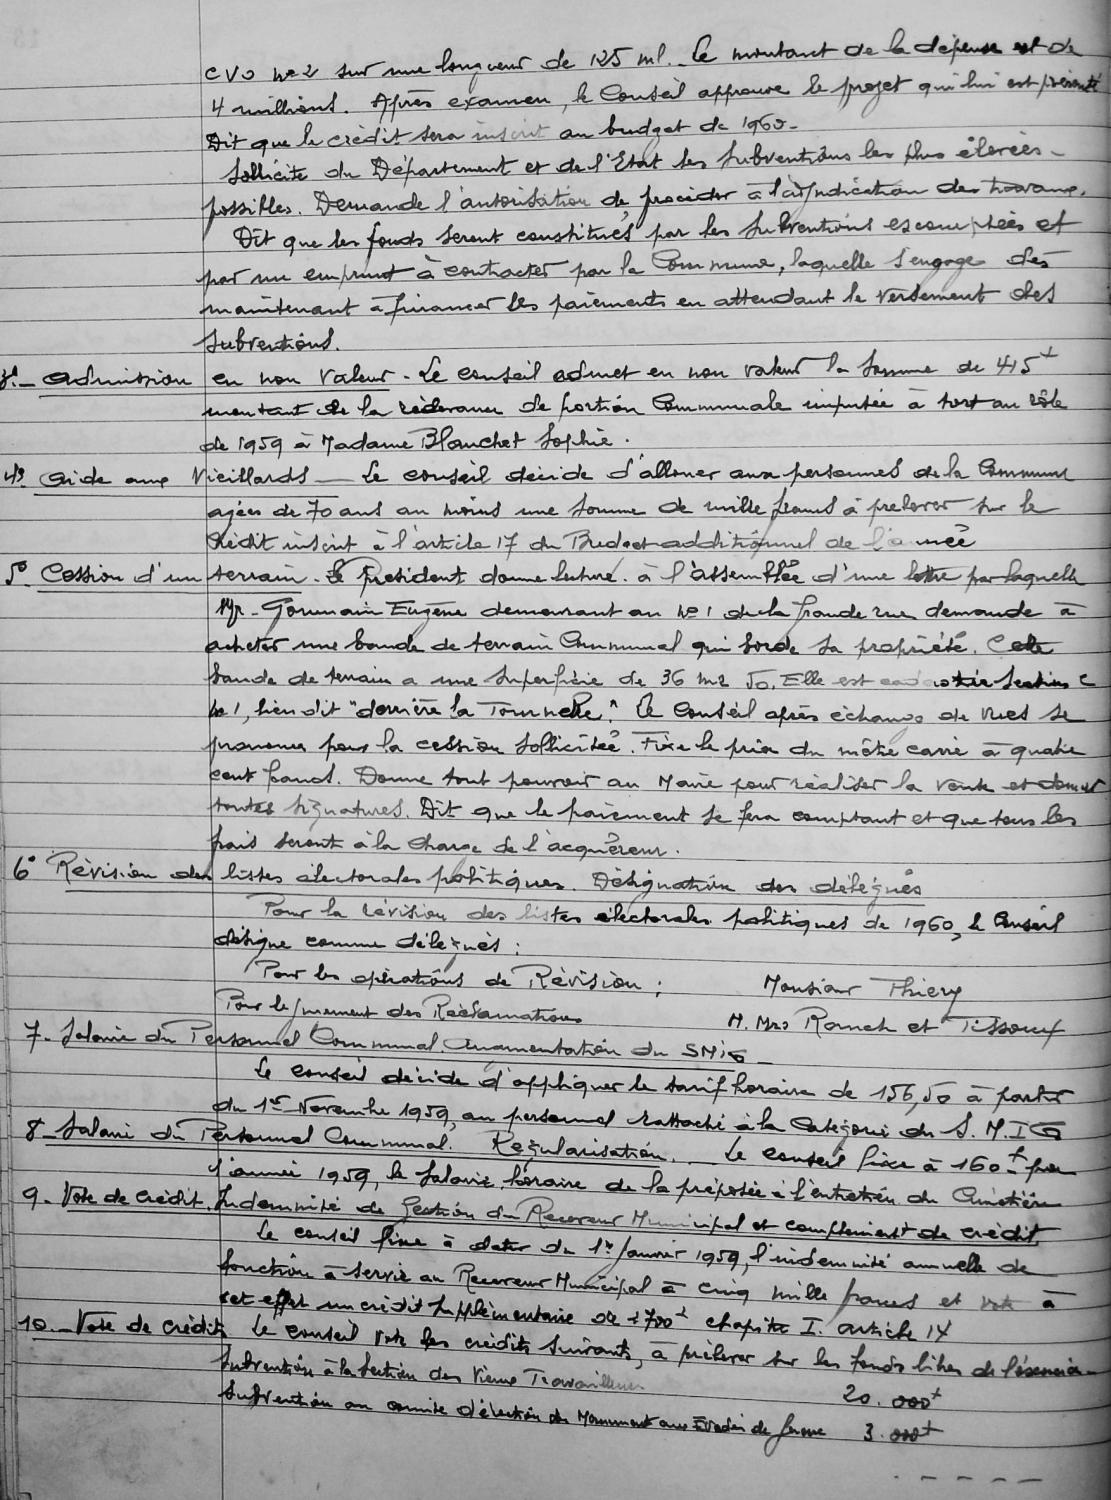 CVO N° 2 sur une longueur de 125 ml. Le montant de la dépense est de
4 millions. Après examen, le Conseil approuve le projet qui lui est présenté
Dit que le crédit sera inscrit au budget de 1960.
Sollicite du Département et de l'Etat les subventions les plus élevées
possibles. Demande l'autorisation de procéder à l'adjudication des travaux.
Dit que les fonds seront constitués par les subventions escomptées et
par un emprunt à contracter par la Commune, laquelle s'engage dès
maintenant à financer les paiements en attendant le versement des
subventions.
3°- Admission en non valeur - Le conseil admet en non valeur la somme de 415 f
montant de la redevance de portion Communale imputée à tort au rôle
de 1959 à Madame Blanchet Sophie.
4° Aide aux Vieillards - Le conseil décide d'allouer aux personnes de la Commune
agées de 70 ans au moins une somme de mille francs à prélever sur le
crédit inscrit à l'article 17 du Budget additionnel de l'année
5° Cession d'un terrain. Le Président donne lecture à l'assemblée d'une lettre par laquelle
Mr. Germain Eugène demeurant au N° 1 de la grande rue demande à
acheter une bande de terrain Communal qui borde sa propriété. Cette
bande de terrain a une superficie de 36 m2 50. Elle est cadastrée Section C
N° 1, lieu dit "derrière la Tournelle". Le Conseil après échange de vues se
prononce pour la cession sollicitée. Fixe le prix du mètre carré à quatre
cent francs. Donne tout pouvoir au Maire pour réaliser la vente et donner
toutes signatures. Dit que le paiement se fera comptant et que tous les
frais seront à la charge de l'acquéreur.
6° Révision des listes électorales politiques. Désignation des délégués
Pour la révision des listes électorales politiques de 1960, le Conseil
désigne comme délégués :
Pour les opérations de Révision : Monsieur Thiery
Pour le jugement des Réclamations M. Mrs et Tissoux
7- Salaire du Personnel Communal. Augmentation du SMIG
Le conseil décide d'appliquer le tarif horaire de 156,50 à partir
du 1er Novembre 1959, au personnel rattaché à la Catégorie du S.M.I.G
8- Salaire du Personnel Communal. Régularisation. - Le conseil fixe à 160 f pour
l'année 1959, le salaire horaire de la préposée à l'entretien du Cimetière
9- Vote de crédit. Indemnité de Gestion du Receveur Municipal et complément de crédit
Le conseil fixe à dater du 1er Janvier 1959, l'indemnité annuelle de
fonction à servir au Receveur Municipal à cinq mille francs et vote à
cet effet un crédit supplémentaire de chapitre I. article 14
10.- Vote de crédits Le conseil vote les crédits suivants, à prélever sur les fonds libres de l'exercice
Subvention à la Section des Vieux Travailleurs 20.000 f
Subvention au comité d'érection du Monument aux Evadés de guerre 3.000 f